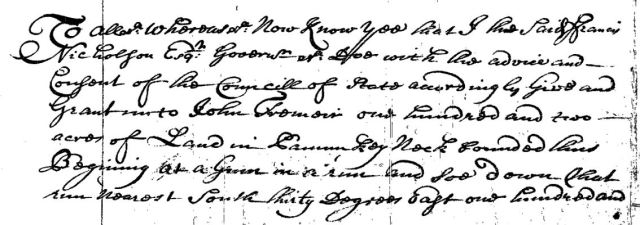 To all &c. Whereas &c. Now Know Yee that I the Said Francis
Nicholson Esqr. Governr. &c. Doe with the advice and
Consent of the Councill of State accordingly Give and
Grant unto John one hundred and two
acres of Land in Pamunkey Neck bounded thus
Beginning at a Gum in a run and soe down that
run Nearest South thirty Degrees East one hundred and